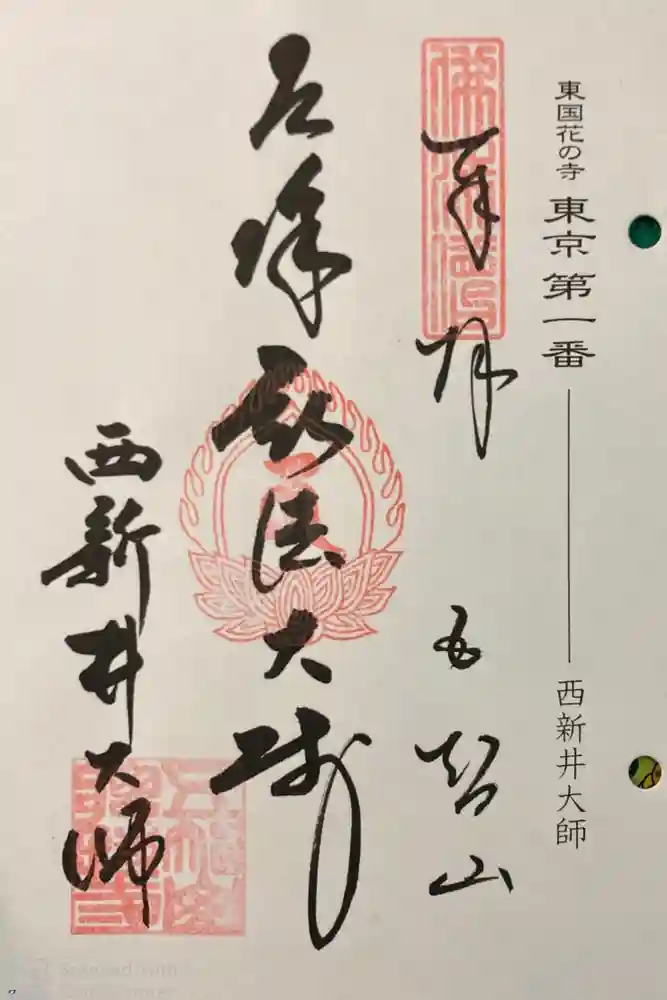 東国花の寺 東京第一番 ── 西新井大師
奉拝 五智山
厄除弘法大師
西新井大師